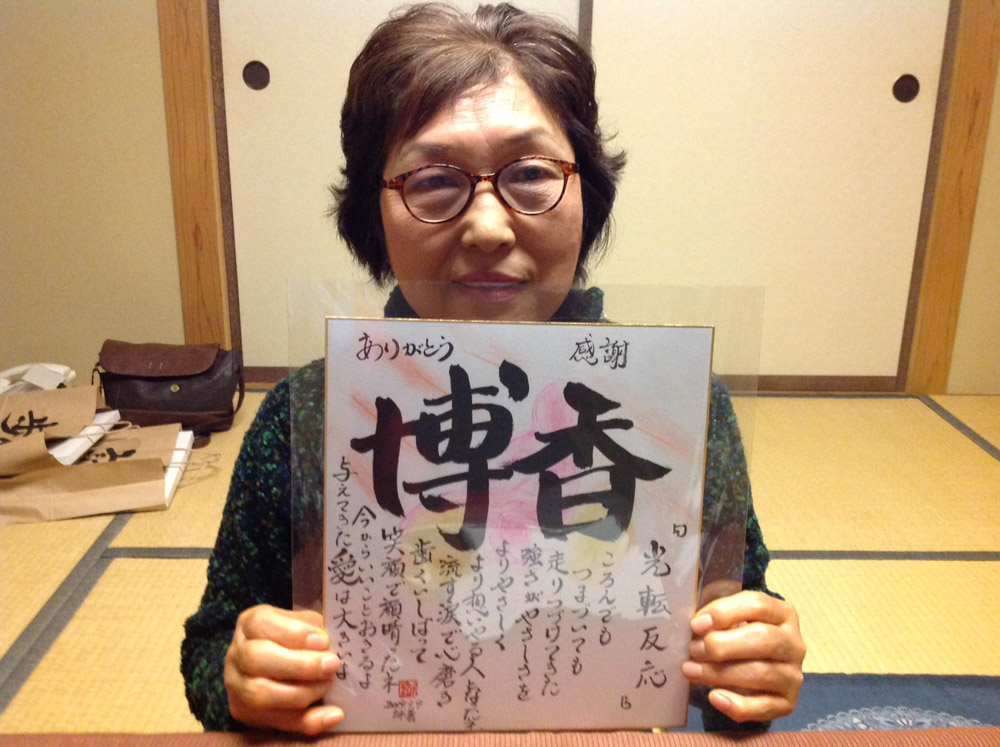 ありがとう
感謝
博香
光転反応
ころんでも
つまづいても
走りつづけてきた
強さがやさしさを
よりやさしく
より想いやる人となった
流す涙で心磨き
歯くいしばって
笑顔で顔晴ったネ
今からいいことおきるよ
与えてきた愛は大きいよ